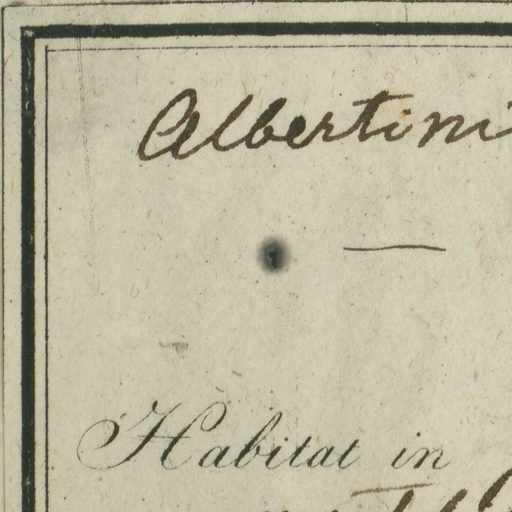 Albertini
Habitat in